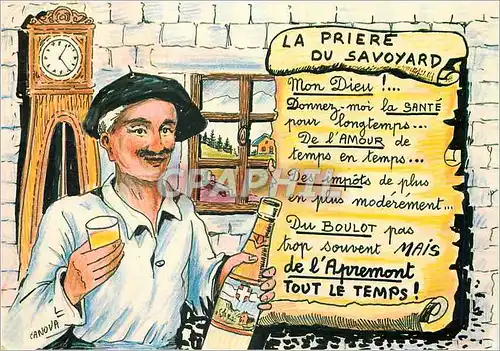 LA PRIERE
DU SAVOYARD
Mon Dieu !...
Donnez-moi la SANTÉ
pour longtemps...
De l'AMOUR de
temps en temps...
Des impôts de plus
en plus moderément...
Du BOULOT pas
trop souvent MAIS
de l'Apremont
TOUT LE TEMPS !
CANOVA